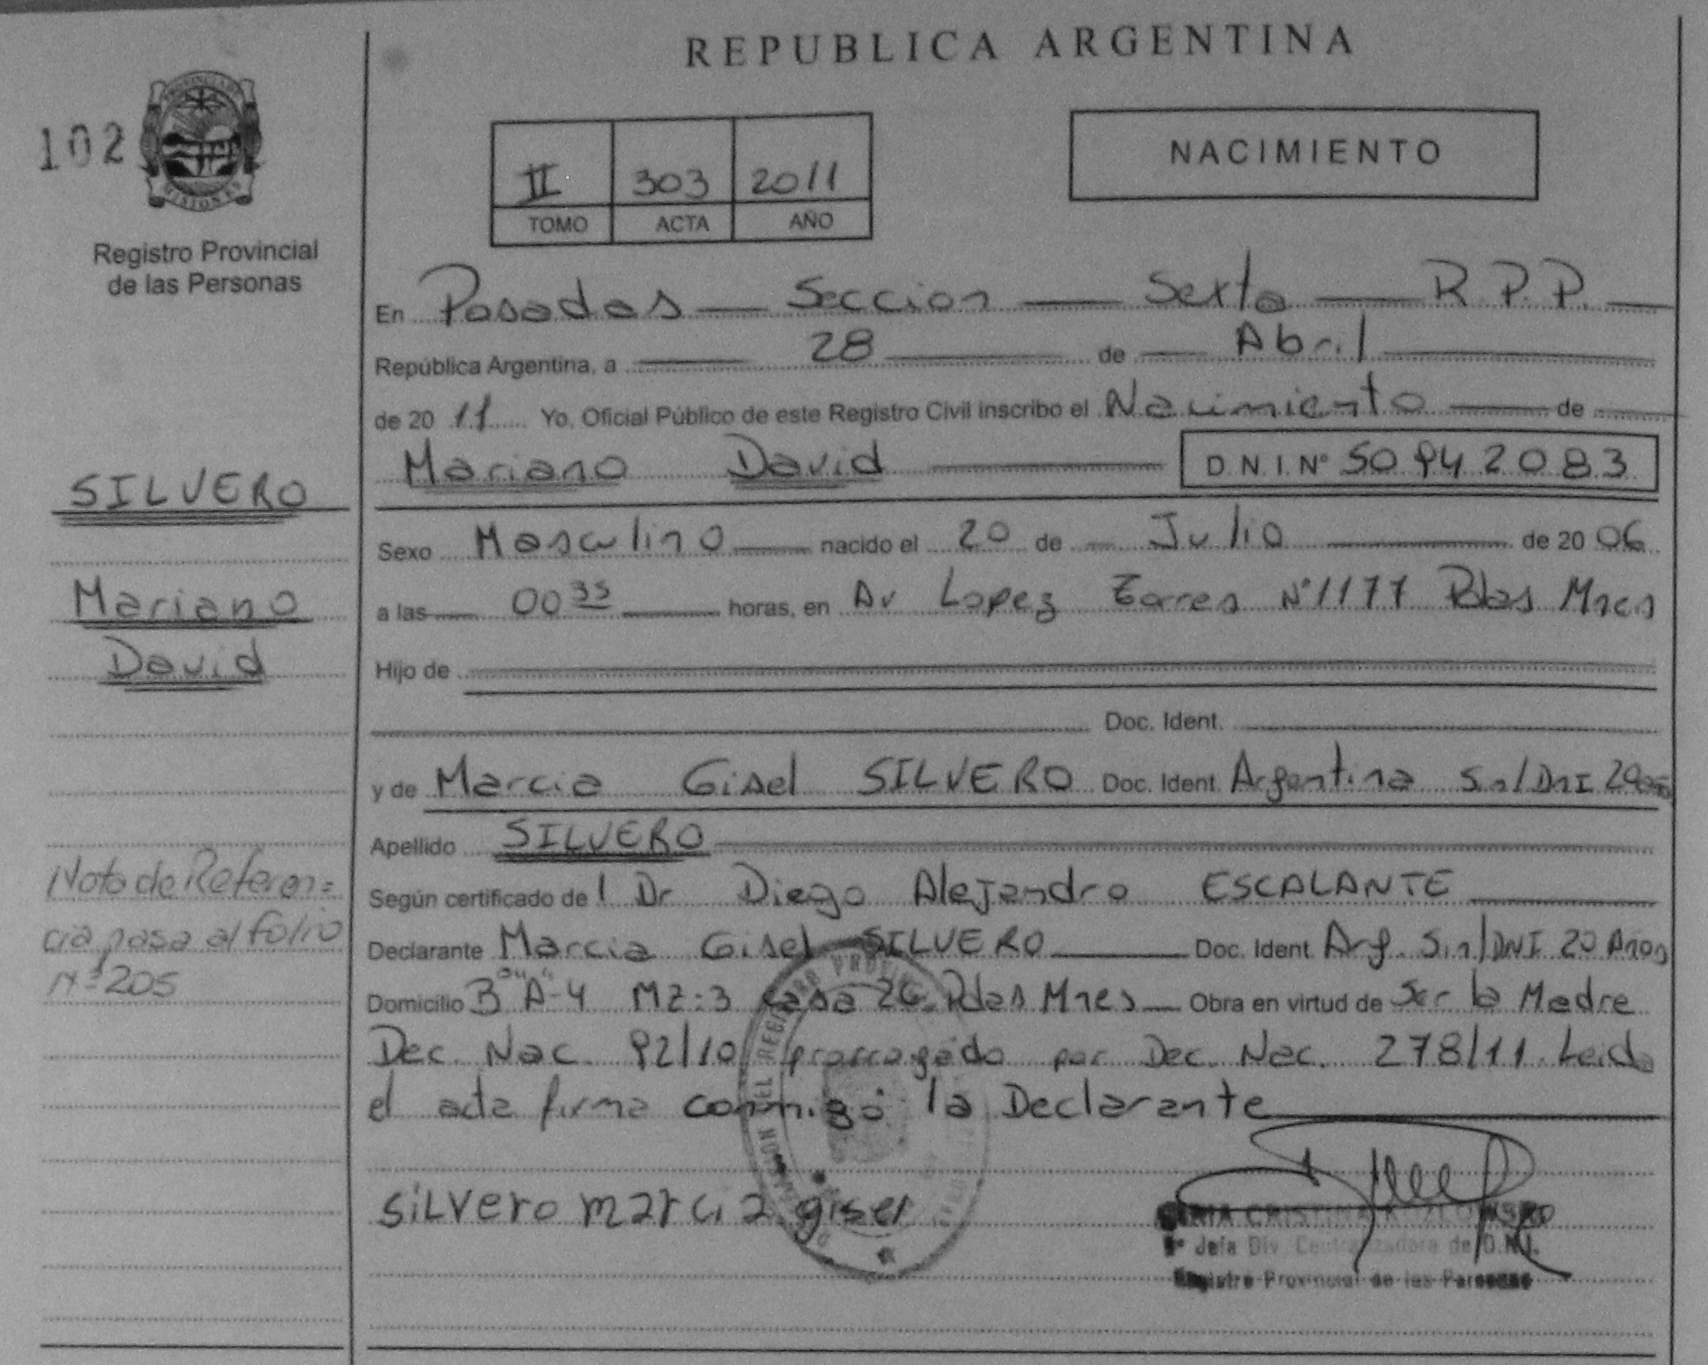 REPUBLICA ARGENTINA
102
PROVINCIA DE
MISIONES
Registro Provincial
de las Personas
II 303 2011
TOMO ACTA AÑO
NACIMIENTO
En Posadas — Seccion — Sexta — R.P.P. —
República Argentina, a — 28 — de — Abril —
de 20 11 Yo, Oficial Público de este Registro Civil inscribo el Nacimiento — de
Mariano David — D.N.I. Nº 50942083
SILVERO
Mariano
David
Sexo Masculino — nacido el 20 de — Julio — de 20 06
a las — 00 35 — horas, en Av Lopez Torres Nº 1177 Pdas Mnes
Hijo de —
Doc. Ident.
y de Marcia Gisel SILVERO Doc. Ident. Argentina Sin/DNI
Apellido SILVERO —
Según certificado de l Dr Diego Alejandro ESCALANTE —
Declarante Marcia Gisel SILVERO — Doc. Ident. Arg. Sin/DNI 20 Anos
Domicilio Bº "A-4" Mz:3 casa 26 Pdas Mnes — Obra en virtud de Ser la Madre
Dec. Nac. 92/10 prorrogado por Dec. Nac. 278/11. Leida
el acta firma conmigo la Declarante —
Nota de Referen=
cia pasa al folio
Nº 205
silvero marcia gisel
CRISTINA
Jefa Div. Centralizadora de D.N.I.
Registro Provincial de las Personas